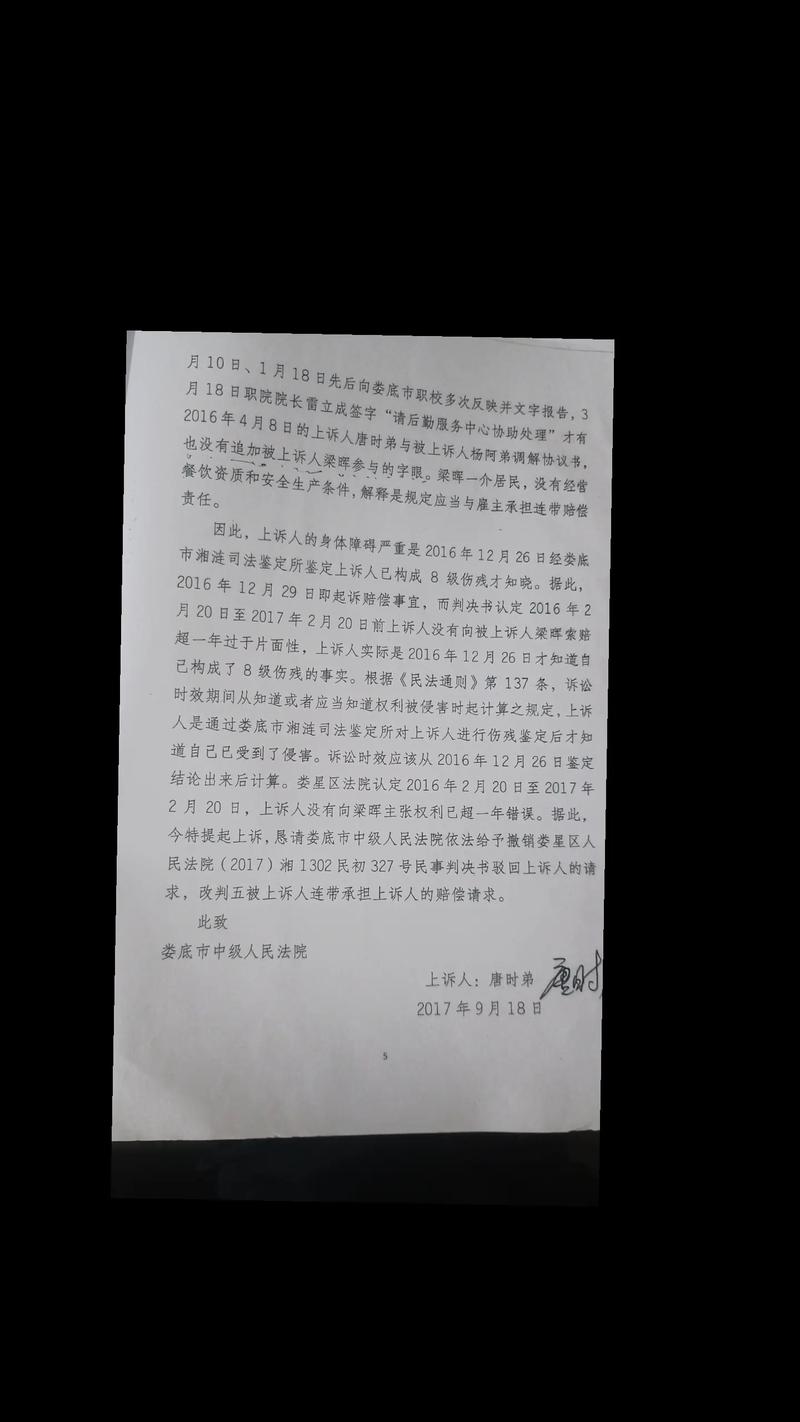 月10日、1月18日先后向娄底市职校多次反映并文字报告，3
月18日职院院长雷立成签字“请后勤服务中心协助处理”才有
2016年4月8日的上诉人唐时弟与被上诉人杨阿弟调解协议书，
也没有追加被上诉人梁晖参与的字眼。梁晖一介居民，没有经营
餐饮资质和安全生产条件，解释是规定应当与雇主承担连带赔偿
责任。
因此，上诉人的身体障碍严重是2016年12月26日经娄底
市湘涟司法鉴定所鉴定上诉人已构成 8 级伤残才知晓。据此，
2016年12月29日即起诉赔偿事宜，而判决书认定2016年2
月20日至2017年2月20日前上诉人没有向被上诉人梁晖索赔
超一年过于片面性，上诉人实际是2016年12月26日才知道自
己构成了8级伤残的事实。根据《民法通则》第137条，诉讼
时效期间从知道或者应当知道权利被侵害时起计算之规定，上诉
人是通过娄底市湘涟司法鉴定所对上诉人进行伤残鉴定后才知
道自己已受到了侵害。诉讼时效应该从2016年12月26日鉴定
结论出来后计算。娄星区法院认定2016年2月20日至2017年
2月20日，上诉人没有向梁晖主张权利已超一年错误。据此，
今特提起上诉，恳请娄底市中级人民法院依法给予撤销娄星区人
民法院（2017）湘1302民初327号民事判决书驳回上诉人的请
求，改判五被上诉人连带承担上诉人的赔偿请求。
此致
娄底市中级人民法院
上诉人：唐时弟 唐时
2017年9月18日
5